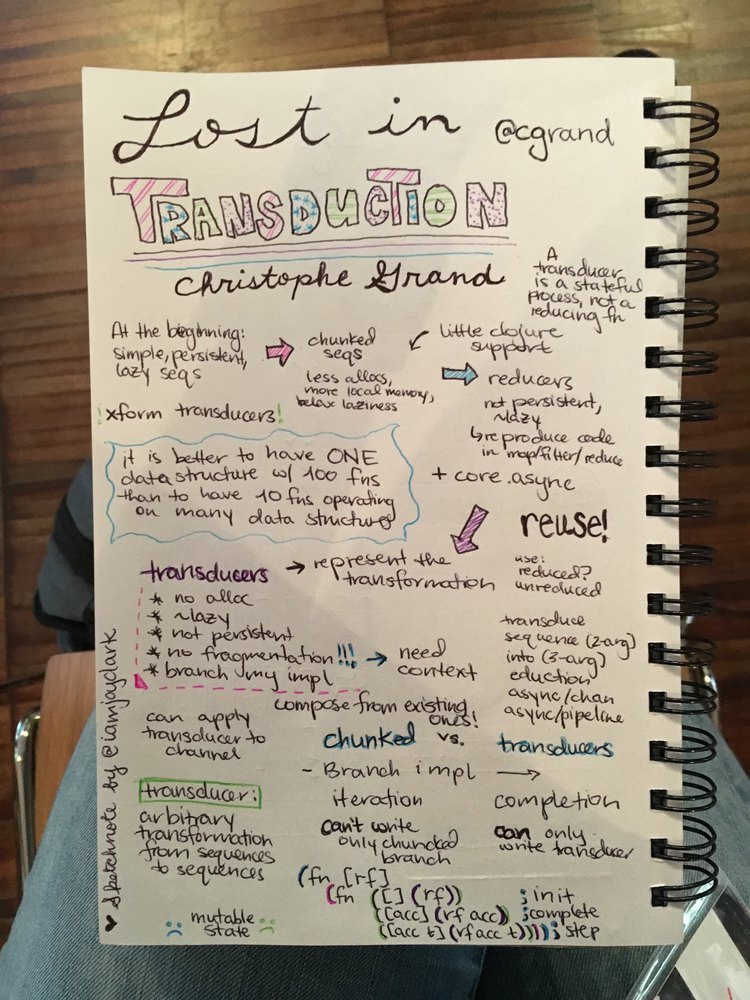 Lost in @cgrand
TRANSDUCTION
Christophe Grand
A
transducer
is a stateful
process, not a
reducing fn
At the beginning:
simple, persistent,
lazy seqs
chunked
seqs
less allocs,
more local memory,
relax laziness
little clojure
support
reducers
not persistent,
~lazy
↳reproduce code
in map/filter/reduce
+ core.async
!xform transducers!
it is better to have ONE
data structure w/ 100 fns
than to have 10 fns operating
on many data structures
reuse!
use:
reduced?
unreduced
transducers → represent the
transformation
* no alloc
* ~lazy
* not persistent
* no fragmentation!!! → need
context
* branch my impl
transduce
sequence (2-arg)
into (3-arg)
eduction
async/chan
async/pipeline
compose from existing
ones!
can apply
transducer to
channel
chunked vs. transducers
- Branch impl →
iteration completion
can't write
only chuncked
branch
can only
write transducer
transducer:
arbitrary
transformation
from sequences
to sequences
mutable
state
(fn [rf]
(fn ([] (rf)) ;init
([acc] (rf acc)) ;complete
([acc t] (rf acc t)))) ;step
♥ Sketchnote by @iamjayclark